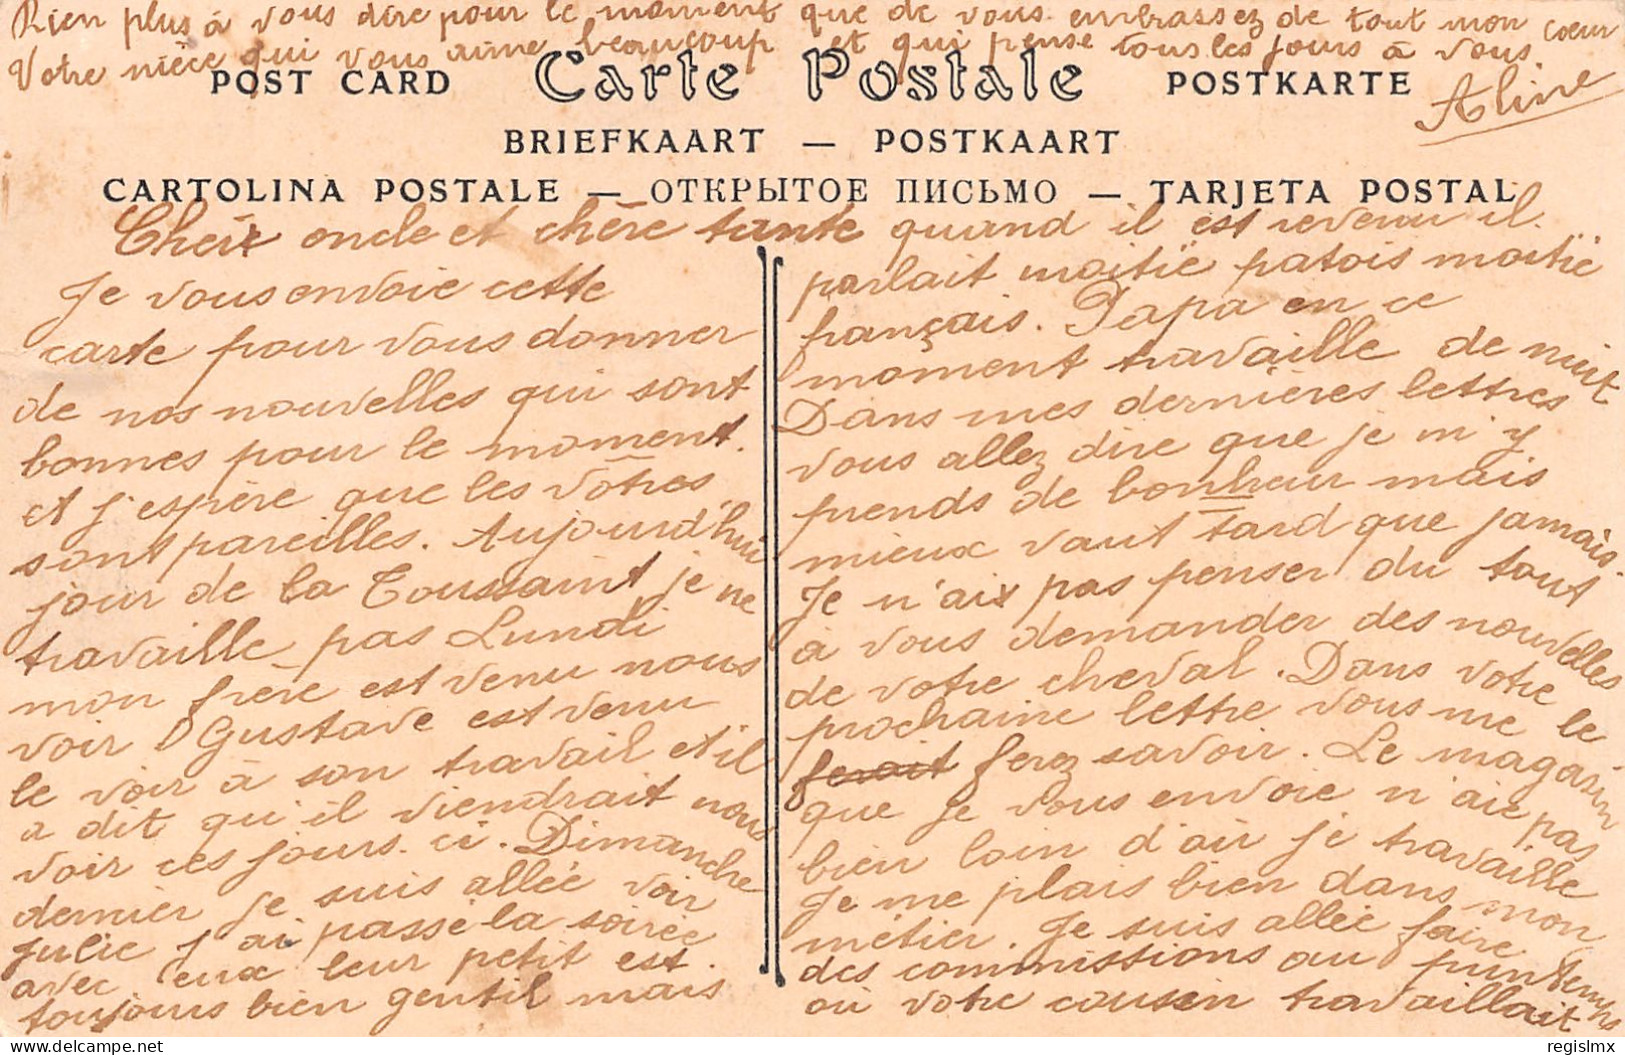 Rien plus à vous dire pour le moment que de vous embrassez de tout mon coeur
Votre nièce qui vous aime beaucoup et qui pense tous les jours à vous.
Aline
POST CARD Carte Postale POSTKARTE
BRIEFKAART — POSTKAART
CARTOLINA POSTALE — ОТКРЫТОЕ ПИСЬМО — TARJETA POSTAL
Cher oncle et chère tante
Je vous envoie cette
carte pour vous donner
de nos nouvelles qui sont
bonnes pour le moment.
et j'espère que les vôtres
sont pareilles. Aujourd'hui
jour de la Toussaint je ne
travaille pas Lundi
mon frere est venu nous
voir Gustave est venu
le voir à son travail et il
a dit qu'il viendrait nous
voir ces jours-ci. Dimanche
dernier je suis allée voir
Julie j'ai passé la soirée
avec eux leur petit est
toujours bien gentil mais
quand il est revenu il
parlait moitié patois moitié
français. Papa en ce
moment travaille de nuit
Dans mes dernières lettres
vous allez dire que je m'y
prends de bonheur mais
mieux vaut tard que jamais.
Je n'ai pas penser du tout
à vous demander des nouvelles
de votre cheval. Dans votre
prochaine lettre vous me le
ferait ferez savoir. Le magasin
que je vous envoie n'aie pas
bien loin d'où je travaille
Je me plais bien dans mon
métier. Je suis allée faire
des commissions au printemps
où votre cousin travaillait
delcampe.net
regislmx